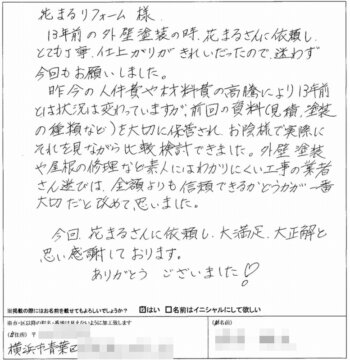 花まるリフォーム 様
13年前の外壁塗装の時、花まるさんに依頼し、
とても丁寧、仕上がりが きれいだったので、迷わず
今回もお願いしました。
昨今の人件費や材料費の高騰により13年前
とは状況は変わっていますが、前回の資料(見積、塗装
の種類など)を大切に保管され、お陰様で実際に
それを見ながら比較検討できました。外壁塗装
や屋根の修理など素人にはわかりにくい工事の業者
さん選びは、金額よりも信頼できるかどうかが一番
大切だと改めて思いました。
今回、花まるさんに依頼し、大満足、大正解と
思い感謝しております。
ありがとう ございました!
※掲載の際にはお名前を載せてもよろしいでしょうか? ☑はい □名前はイニシャルにして欲しい
ご住所 〒
お名前
横浜市青葉区